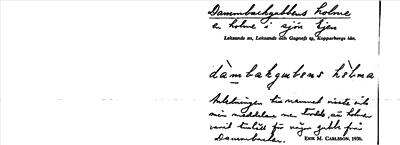 Dammbackgubbens holme
en holme i sjön Ejen
Leksands sn, Leksands och Gagnefs tg, Kopparbergs län.
dàmbakgubens hòlma
till namnet visste
min meddelare men trodde, att holmen
varit tillhåll för någon gubbe från
Dammbacken.
ERIK M. CARLSSON, 1936.